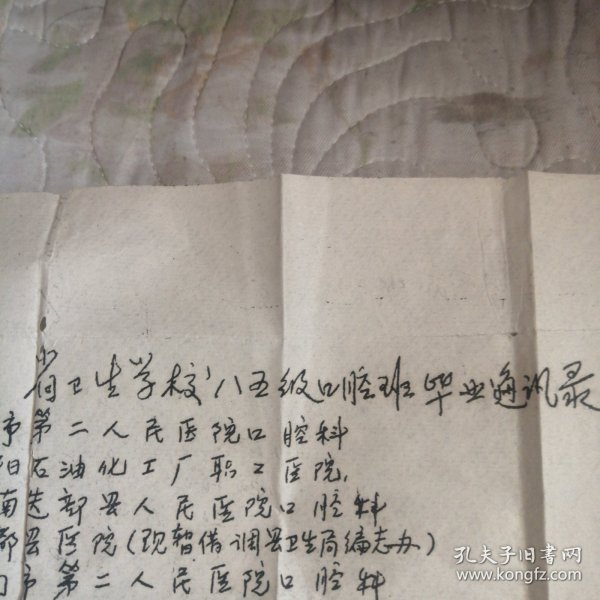 卫生学校八五级口腔班毕业通讯录
市第二人民医院口腔科
阳石油化工厂职工医院,
南部县人民医院口腔科
部县医院(现暂借调县卫生局编志办)
市第二人民医院口腔科
孔夫子旧书网
www.kongfz.com